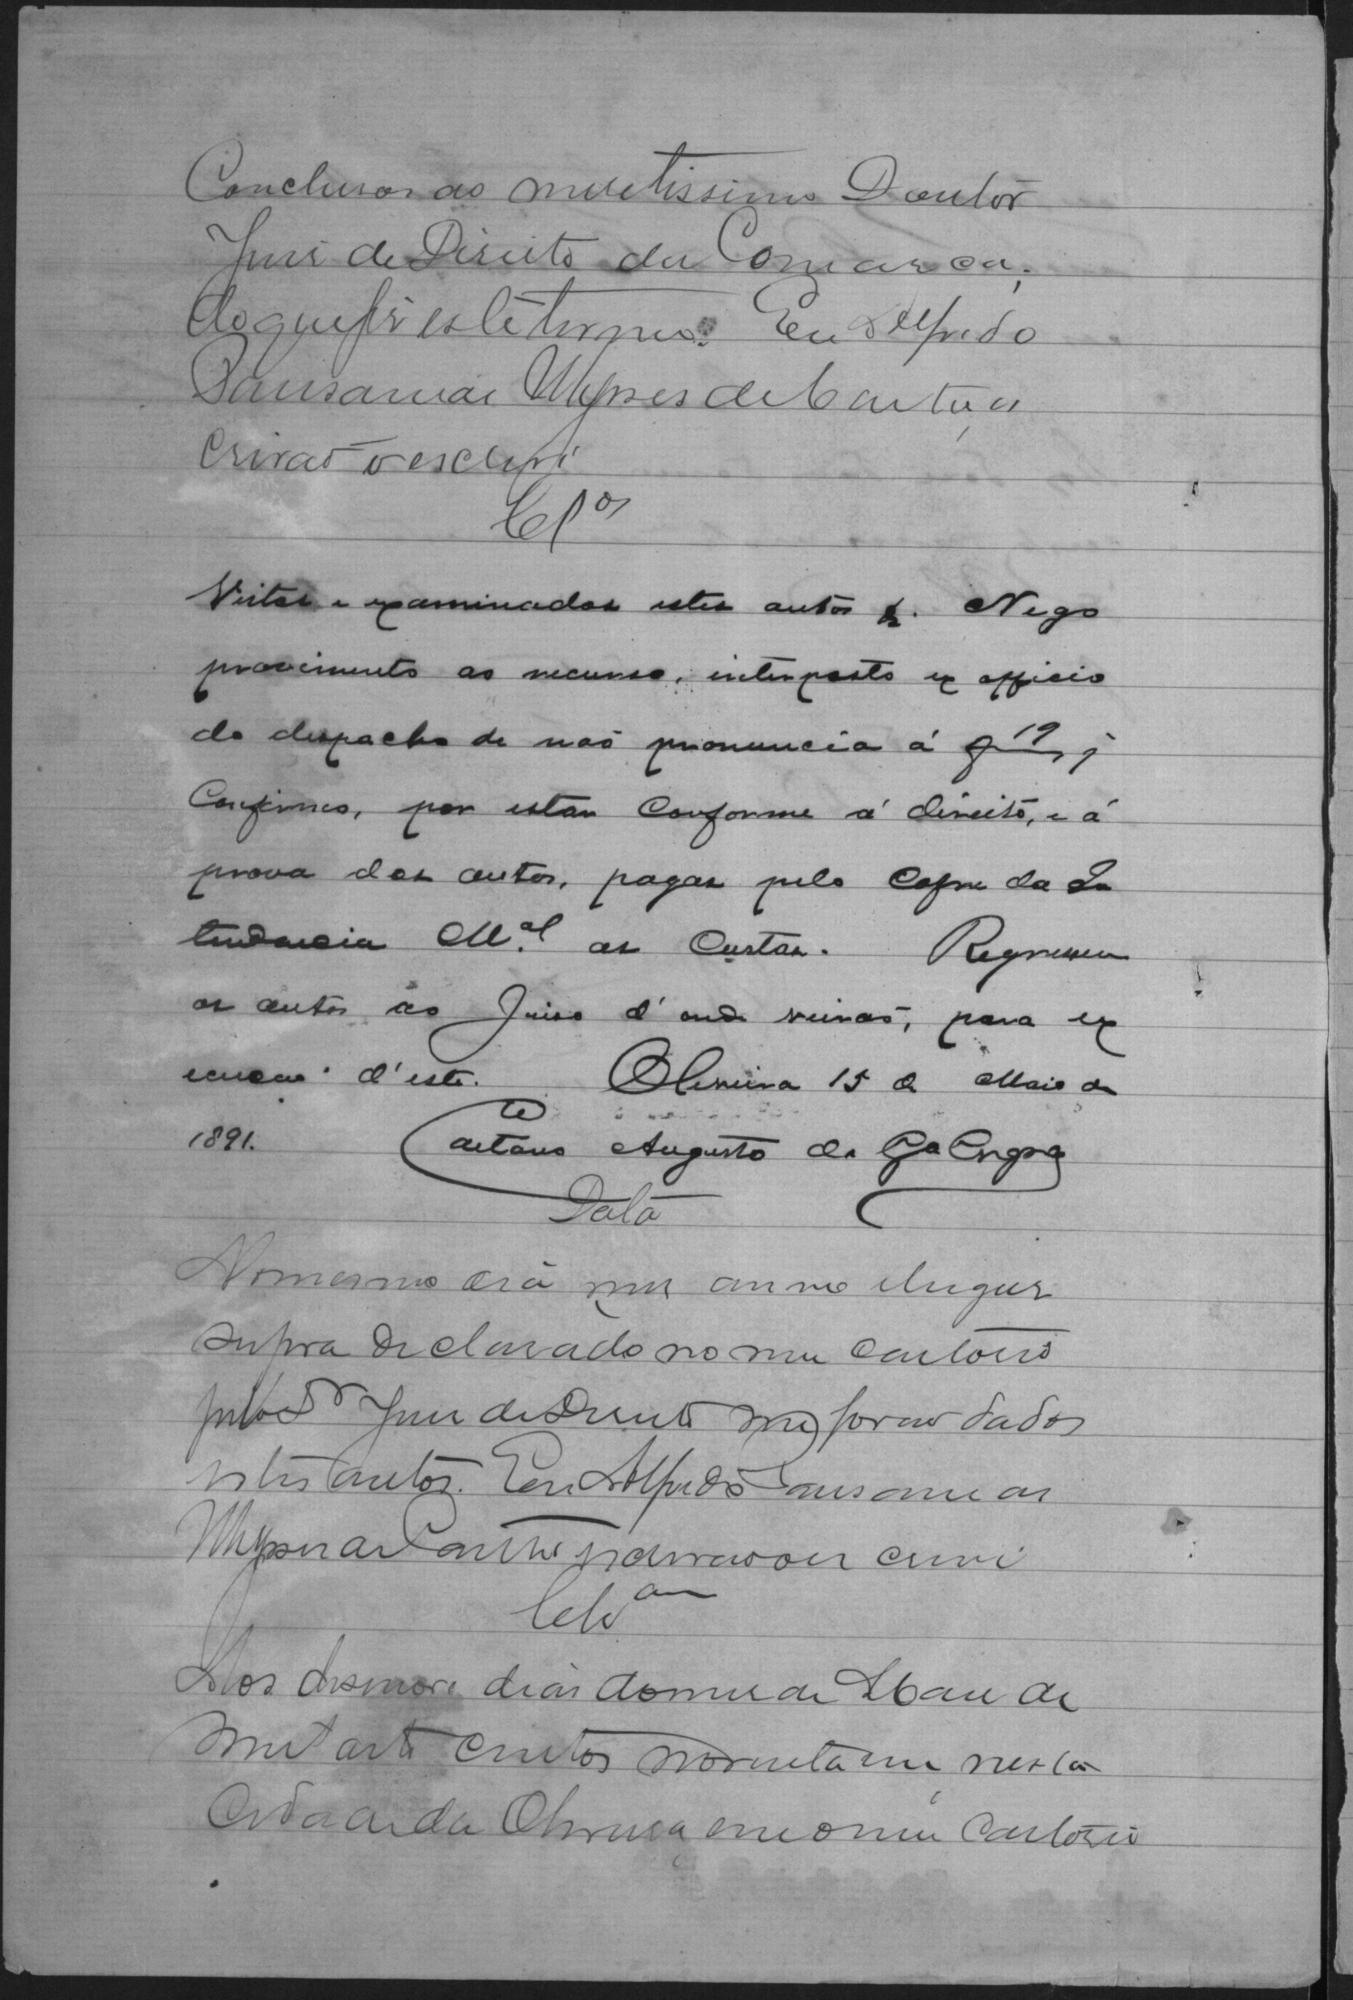 Conclusos ao meretissimo Doutor
Juis de Direito da Comarca,
do que fis este termo. Eu Alfredo
Pausanias Ulysses de Castro, es
crivaõ o escrevi
Clºs
Vistos e examinados estes autos &. Nego
provimento ao recurso, interposto ex officio
do despacho de naõ pronuncia á f 19,
Confirmo, por estar conforme á direito, e á
prova dos autos, pagas pelo cofre da In
tendencia M.al as custas. Regressem
os autos ao Juiso d'onde vieraõ, para ex
ecuçaõ d'este. Oliveira 15 de Maio de
1891. Caetano Augusto da Gama
Data
No mesmo dia mes anno e lugar
supra declarado no meu cartorio
pelo Dr Juis de Direito me foraõ dados
estes autos. Eu Alfredo Pausanias
Ulysses de Castro escrivaõ o escrevi
Aos desenove dias do mes de Maio de
mil oito centos noventa e um nesta
Cidade da Oliveira em o meu cartorio